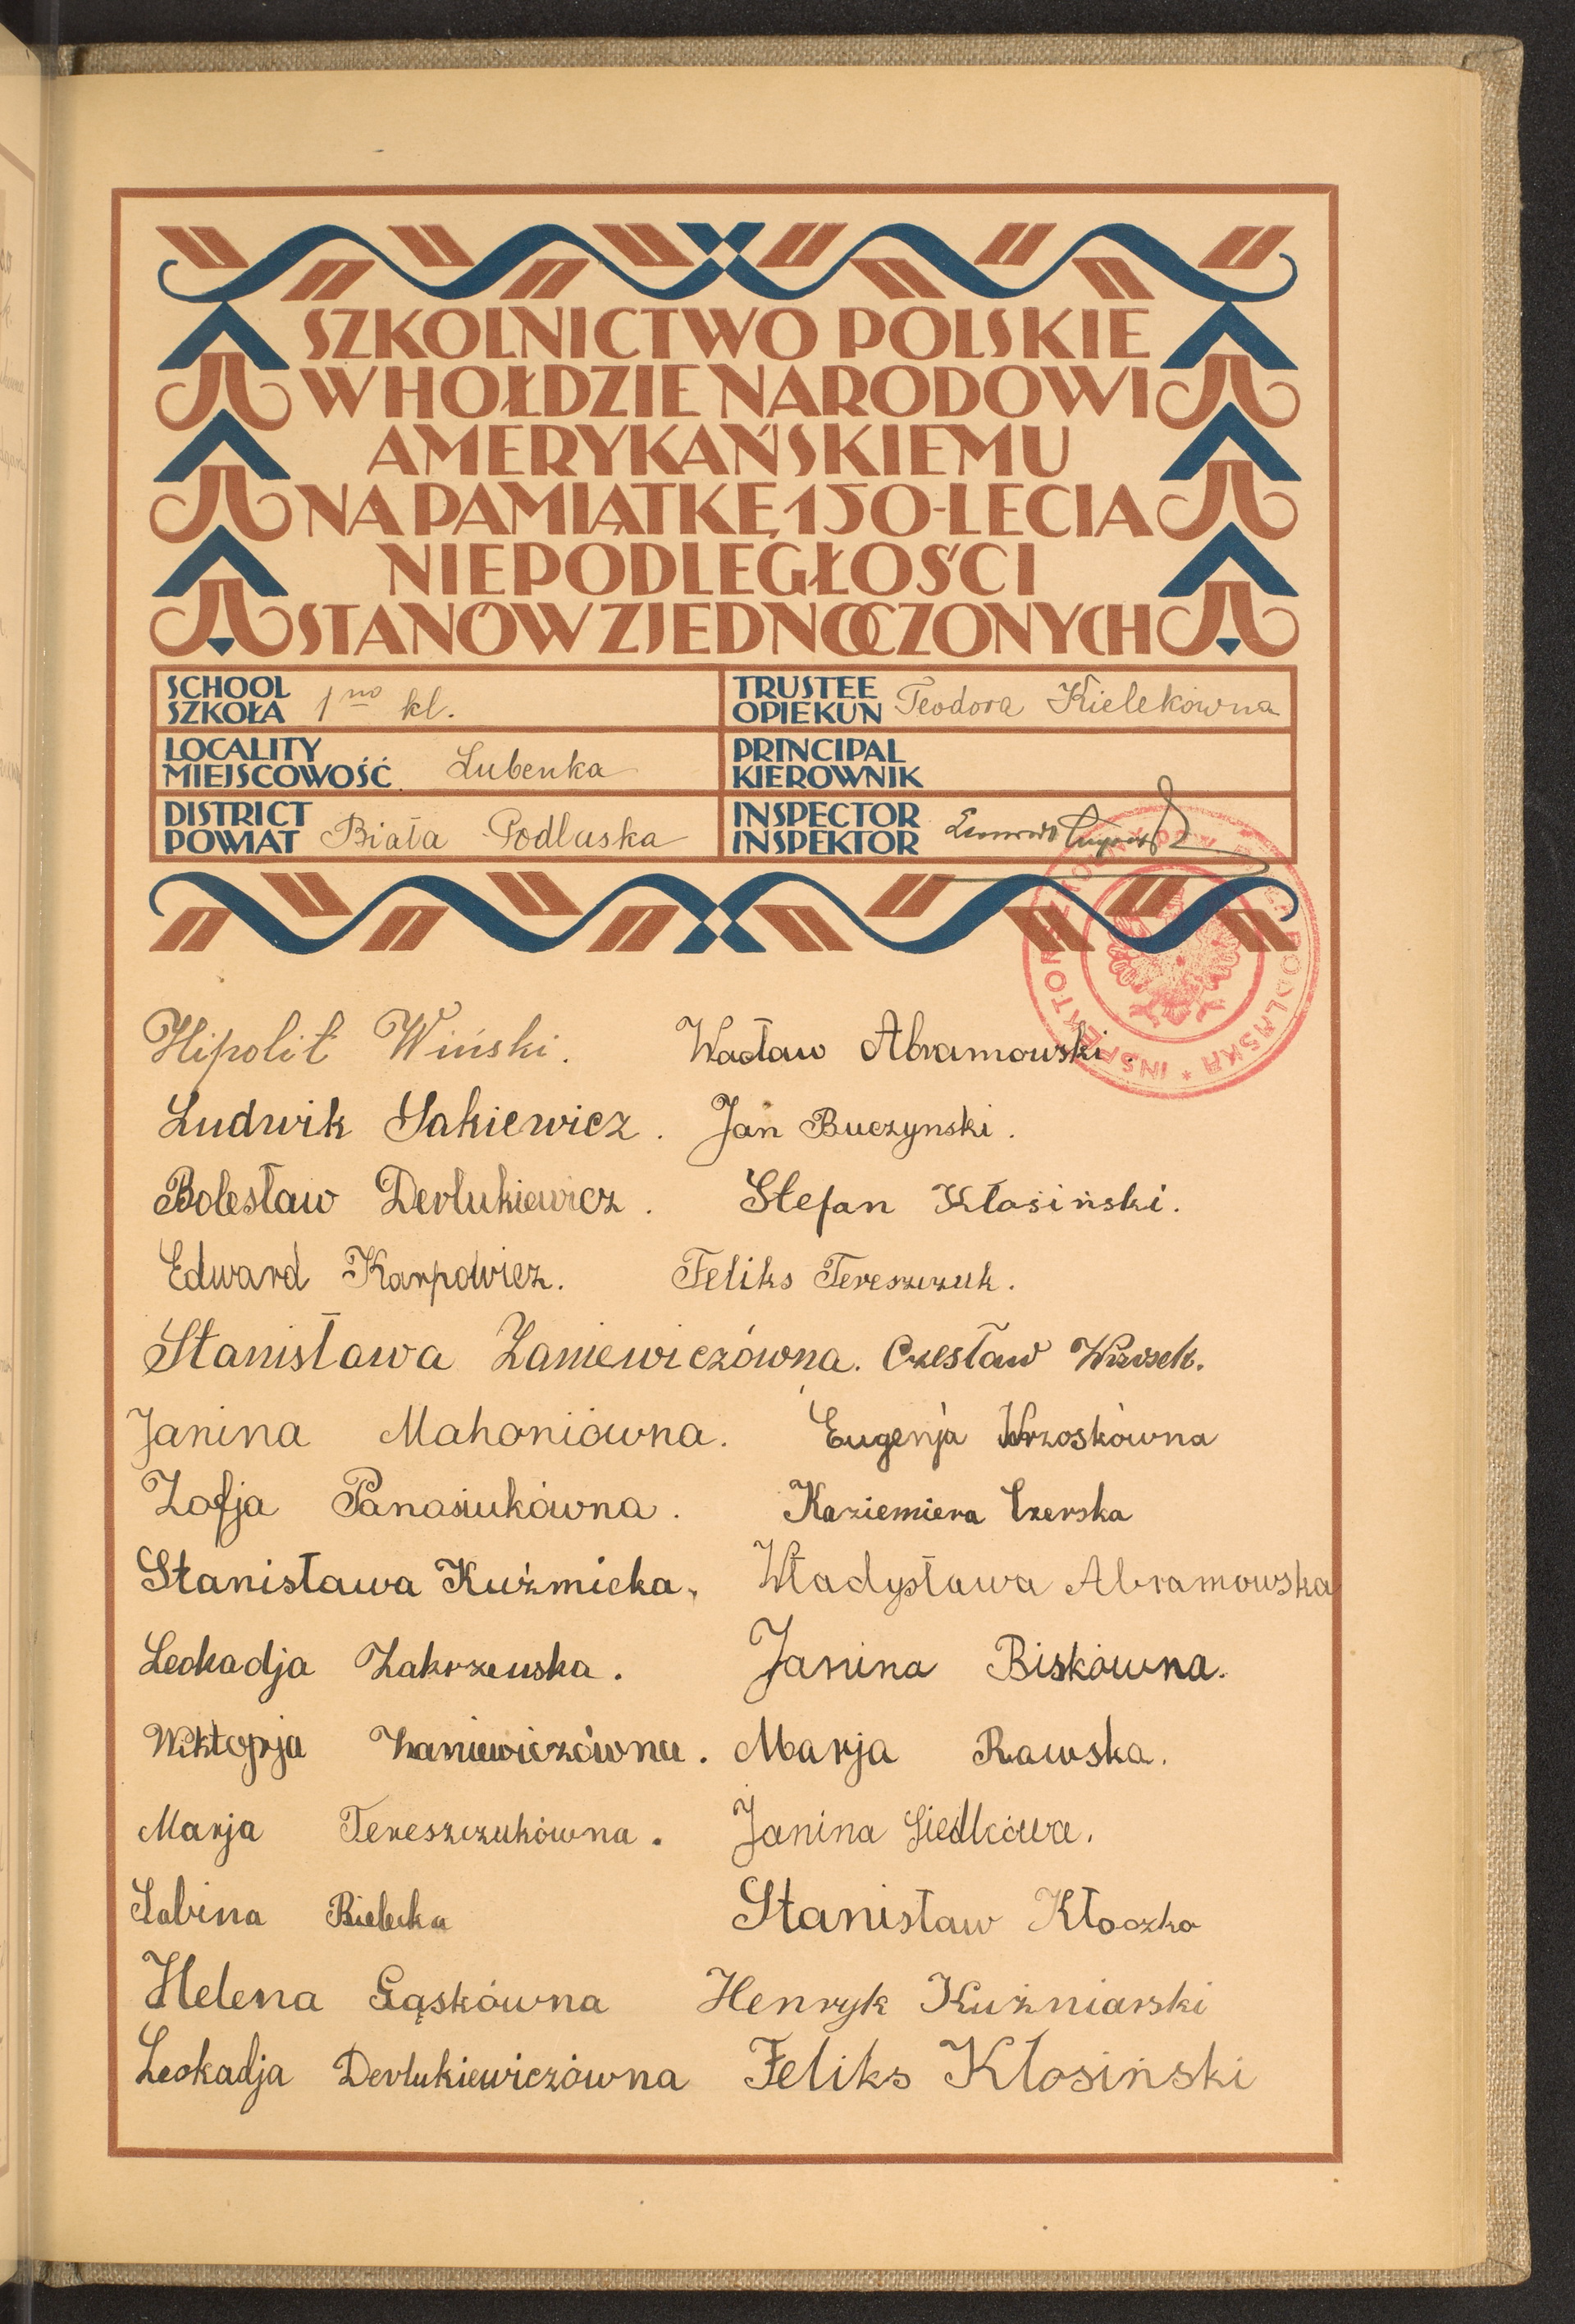 SZKOLNICTWO POLSKIE
W HOŁDZIE NARODOWI
AMERYKAŃSKIEMU
NA PAMIĄTKĘ 150-LECIA
NIEPODLEGŁOŚCI
STANÓW ZJEDNOCZONYCH
SCHOOL
SZKOŁA 1no kl.
TRUSTEE
OPIEKUN Teodora Kielekówna
LOCALITY
MIEJSCOWOŚĆ Łubenka
PRINCIPAL
KIEROWNIK
DISTRICT
POWIAT Biała Podlaska
INSPECTOR
INSPEKTOR
Hipolit Wiński. Wacław Abramowski.
Ludwik Sakiewicz. Jan Buczynski.
Bolesław Derlukiewicz. Stefan Kłosiński.
Edward Karpowicz. Feliks Tereszczuk.
Stanisława Zaniewiczówna. Czesław Wrzosek.
Janina Mahoniówna. Eugenja Wrzoskówna
Zofja Panasiukówna. Kaziemiera Czerska
Stanisława Kuźmicka, Władysława Abramowska
Leokadja Zakrzewska. Janina Biskówna.
Wiktorja Zaniewiczówna. Marja Rawska.
Marja Tereszczukówna. Janina
Sabina Bielecka Stanisław Kłoczko
Helena Gąskówna Henryk Kuźniarski
Leokadja Derlukiewiczówna Feliks Kłosiński